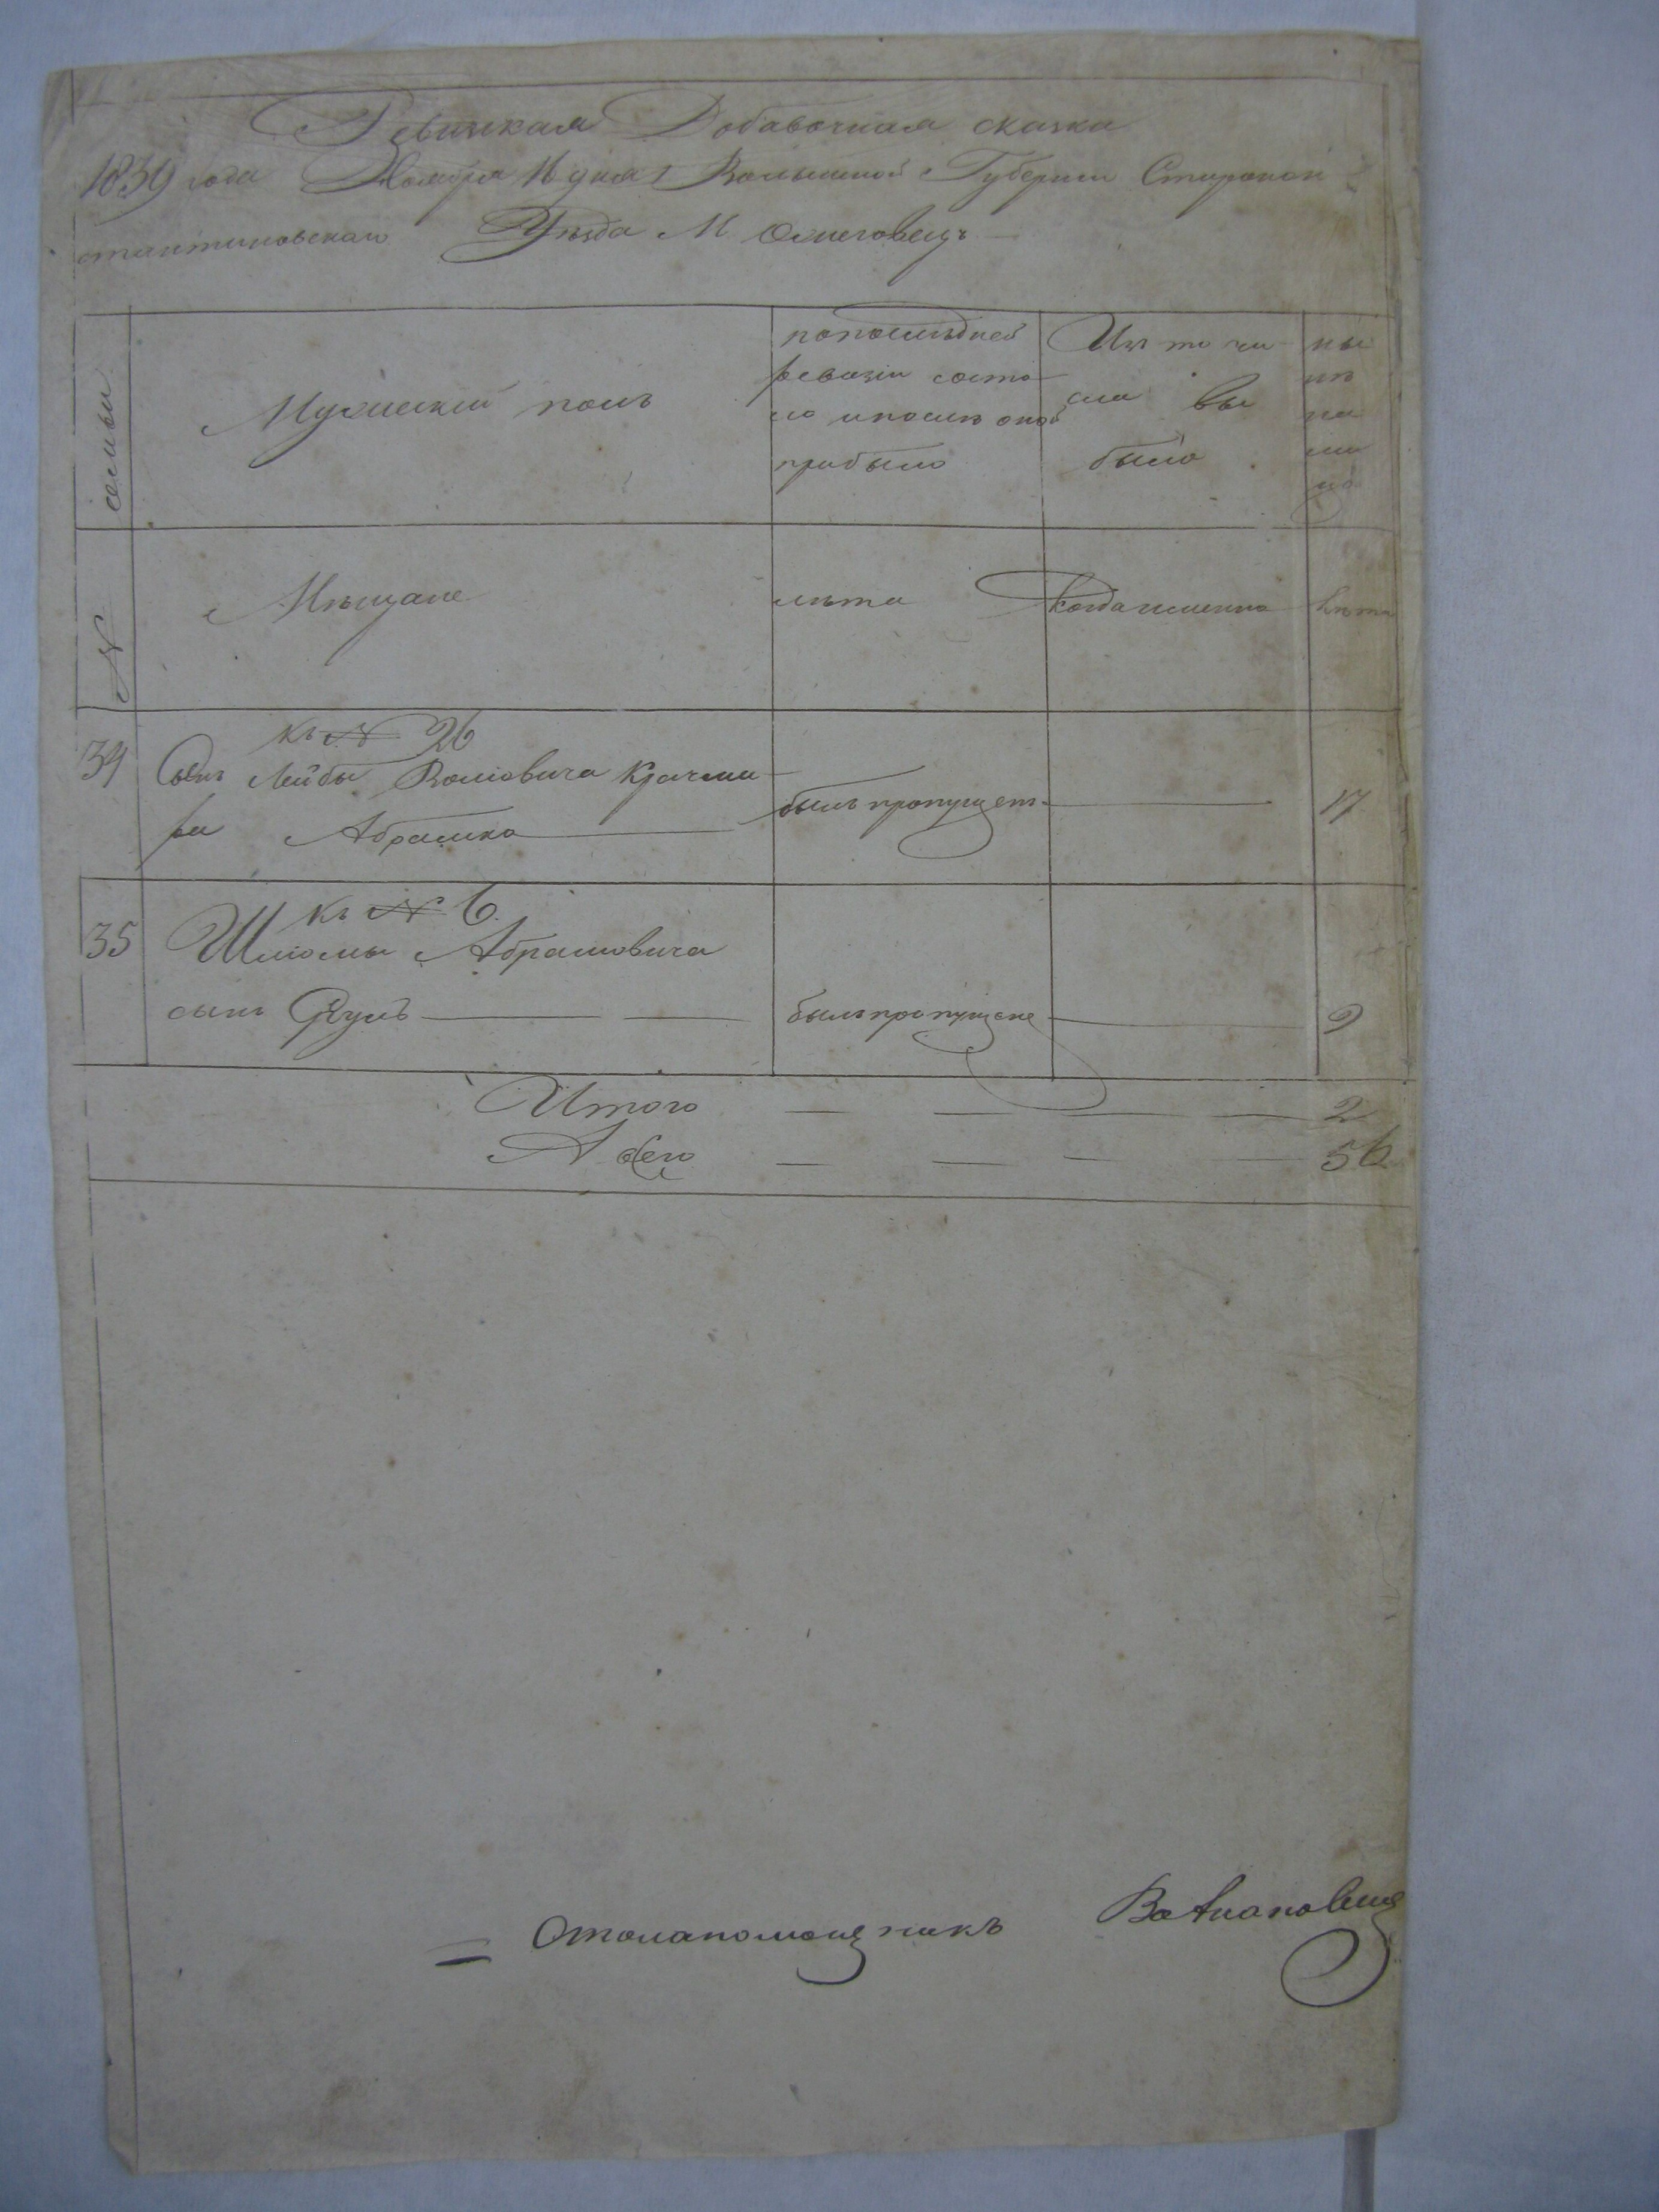 Ревизкая Добавочная сказка
1839 года Ноября 16 дня Волынской Губернии Старокон
стантиновскаго Уезда М Ожеговецъ
№ семьи
Мужеский полъ
попоследней ревазии состо
ло ипосле оной
прибыло
Изъ то чи
сла вы
было
ны
не
на
ли
цо
Мещане
лета
Когда именно
Лета
къ № 26
34 Сынъ Лейбы Вольовича Крачма
ра Абрамко
былъ пропущен
17
къ № 6.
35 Шлиомы Абрамовича
сынъ
былъ пропущене
9
Итого 2
А всего 56
Столапомощникъ